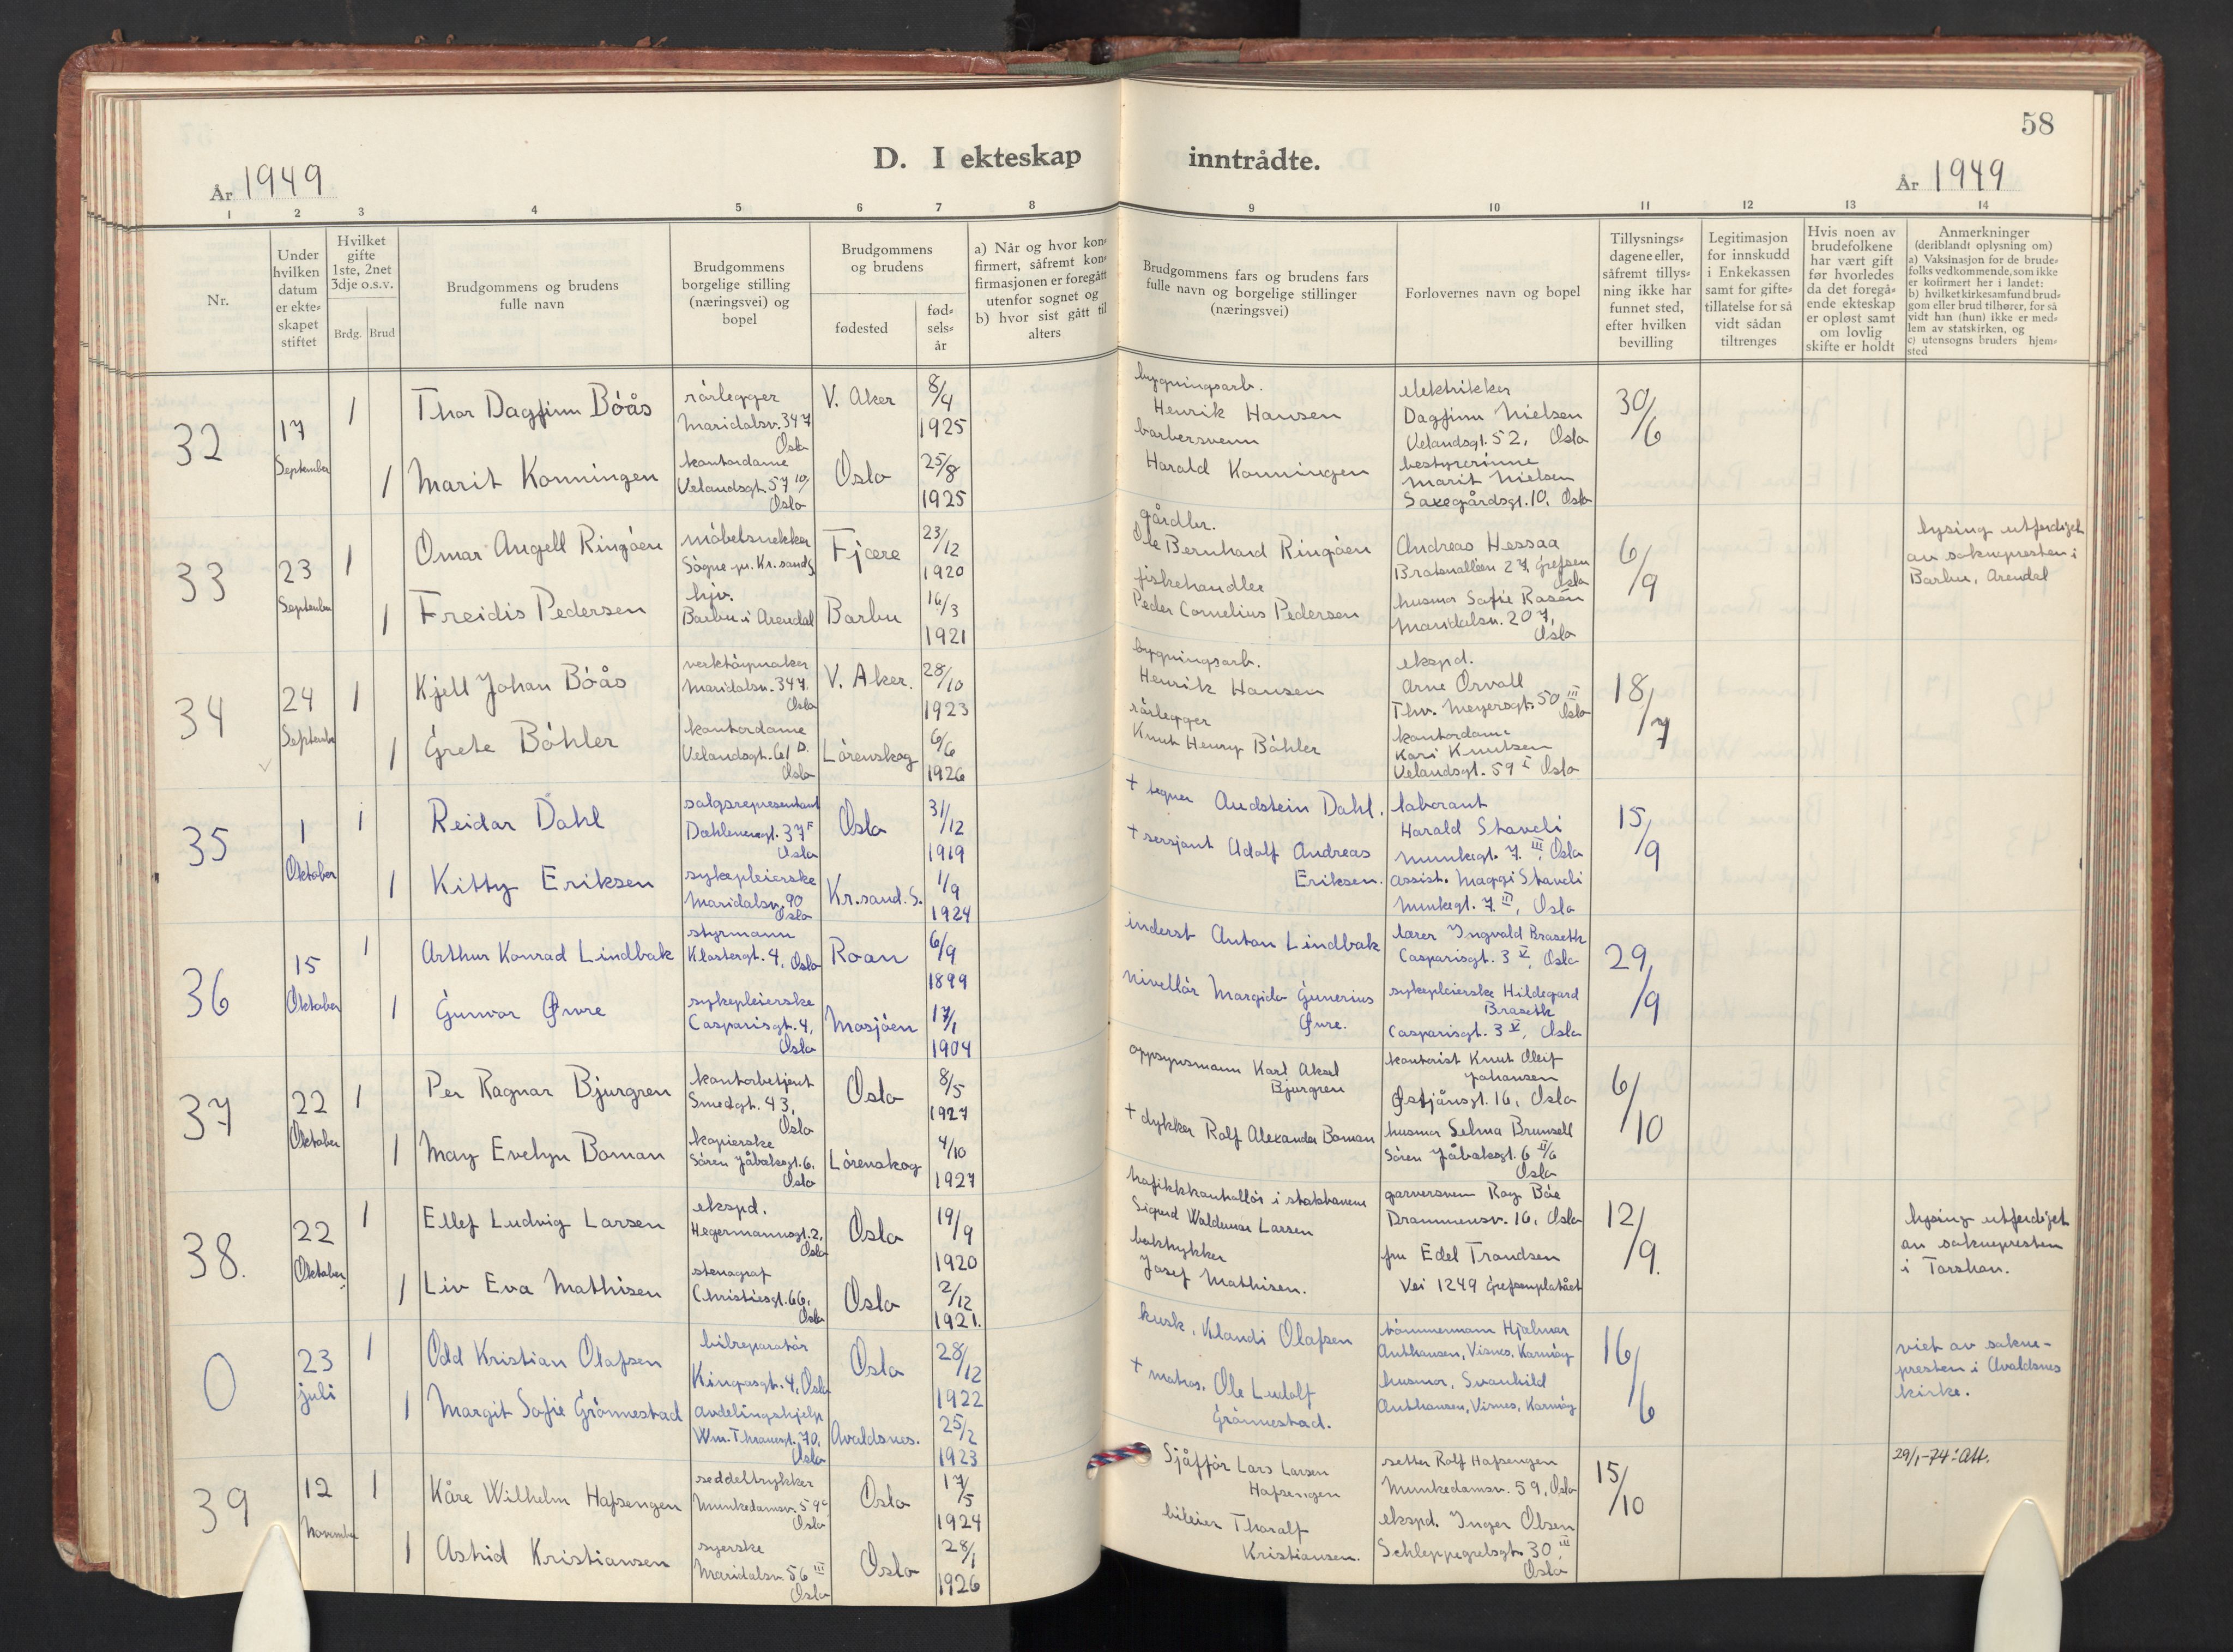 58
D. I ekteskap inntrådte.
År 1949
År 1949
1 2 3 4 5 6 7 8 9 10 11 12 13 14
Nr.
Under
hvilken
datum
er ekte-
skapet
stiftet
Hvilket
gifte
1ste, 2net
3dje o.s.v.
Brdg. Brud
Brudgommens og brudens
fulle navn
Brudgommens
borgelige stilling
(næringsvei) og
bopel
Brudgommens
og brudens
fødested
fød-
sels-
år
a) Når og hvor kon-
firmert, såfremt kon-
firmasjonen er foregått
utenfor sognet og
b) hvor sist gått til
alters
Brudgommens fars og brudens fars
fulle navn og borgelige stillinger
(næringsvei)
Forlovernes navn og bopel
Tillysnings-
dagene eller,
såfremt tillys-
ning ikke har
funnet sted,
efter hvilken
bevilling
Legitimasjon
for innskudd
i Enkekassen
samt for gifte-
tillatelse for så
vidt sådan
tiltrenges
Hvis noen av
brudefolkene
har vært gift
før hvorledes
da det foregå-
ende ekteskap
er opløst samt
om lovlig
skifte er holdt
Anmerkninger
(deriblandt oplysning om)
a) Vaksinasjon for de brude-
folks vedkommende, som ikke
er kofirmert her i landet:
b) hvilket kirkesamfund brud-
gom eller brud tilhører, for så
vidt han (hun) ikke er med-
lem av statskirken, og
c) utensogns bruders hjem-
sted
32
17
September
1
Thor Dagfinn Bóås
rórlegger
Maridalsv. 347
Oslo
V. Aker
8/4
1925
bygningsarb.
Henrik Hansen
elektriker
Dagfinn Nielsen
Velandsgt. 52, Oslo
30/6
1
Marit Konningen
kontordame
Velandsgt. 57 10/
Oslo
Oslo
25/8
1925
barbersvenn
Harald Konningen
bestyrerinne
Marit Nielsen
Saxegårdsgt. 10, Oslo
33
23
September
1
Omar Angell Ringóen
móbelsnekker
Sógne pr. Kr.sand S.
Fjære
23/12
1920
gårdbr.
Ole Bernhard Ringóen
Andreas Hessaa
Bratvallien 27, Grefsen
Oslo
6/9
lysing utferdiget
av soknepresten i
Barbu, Arendal
1
Freidis Pedersen
hjv.
Barbu i Arendal
Barbu
16/3
1921
fiskehandler
Peder Cornelius Pedersen
husmor Sofie Rosén
Maridalsv. 207,
Oslo
34
24
September
1
Kjell Johan Bóås
verktóymaker
Maridalsv. 347.
Oslo
V. Aker.
28/10
1923
bygningsarb.
Henrik Hansen
ekspd.
Arne Orvall
Thv. Meyersgt. 50 III
Oslo
18/7
1
Grete Bóhler
kontordame
Velandsgt. 61 D.
Oslo
Lórenskog
6/6
1926
rórlegger
Knut Henry Bóhler
kontordame
Kari Knutsen
Velandsgt. 59 I Oslo
35
1
Oktober
1
Reidar Dahl
salgsrepresentant
Dæhlenensgt. 37 F
Oslo
Oslo
31/12
1919
† tegner Audstein Dahl.
laborant
Harald Staveli
Munkegt. 7. III, Oslo
15/9
1
Kitty Eriksen
sykepleierske
Maridalsv. 90
Oslo
Kr.sand. S.
1/9
1924
† sersjant Adolf Andreas
Eriksen.
assist. Maggi Staveli
Munkegt. 7. III, Oslo
36
15
Oktober
1
Arthur Konrad Lindbak
styrmann
Klostergt. 4, Oslo
Roan
6/9
1899
inderst Anton Lindbak
lærer Ingvald Brasetk
Casparisgt. 3 V, Oslo
29/9
1
Gunvor Øvre
sykepleierske
Casparisgt. 4,
Oslo
Mosjóen
17/1
1904
nivellór Margido Gunerius
Øvre.
sykepleierske Hildegard
Brasetk
Casparisgt. 3 V, Oslo
37
22
Oktober
1
Per Ragnar Bjurgren
kontorbetjent
Smedgt. 43,
Oslo
Oslo
8/5
1927
oppsynsmann Karl Aksel
Bjurgren
kontorist Knut Oleif
Johansen
Østjånsgt. 16, Oslo
6/10
1
May Evelyn Boman
kopierske
Sóren Jåbæksgt. 6,
Oslo
Lórenskog
4/10
1927
† dykker Rolf Alexander Boman
husmor Selma Brunsell
Sóren Jåbæksgt. 6 II/6
Oslo
38.
22
Oktober
1
Ellef Ludvig Larsen
ekspd.
Hegermannsgt. 2,
Oslo
Oslo
19/9
1920
trafikkkontrollór i statsbanene
Sigurd Waldemar Larsen
garversvenn Roy Bóe
Drammensv. 16, Oslo
12/9.
lysing utferdiget
av soknepresten
i Torshov.
1
Liv Eva Mathisen
stenograf
Christiesgt. 66,
Oslo
Oslo
2/12
1921.
boktrykker
Josef Mathisen.
fru Edel Trondsen
Vei 1249 Grefsenplatået
0
23
juli
1
Odd Kristian Olafsen
bilreparatór
Kingosgt. 4, Oslo
Oslo
28/12
1922
kusk, Klaudi Olafsen
tómmermann Hjalmar
Anthonsen, Visnes, Karmóy
16/6
viet av sokne-
presten i Avaldsnes
kirke.
1
Margit Sofie Grónnestad
avdelingshjelp
Wm. Thranesgt. 70,
Oslo
Avaldsnes.
25/2
1923
† matros, Ole Ludolf
Grónnestad.
husmor, Svanhild
Anthonsen, Visnes, Karmóy
39
12
November
1
Kåre Wilhelm Hafsengen
seddeltrykker
Munkedamsv. 59 c
Oslo
Oslo
17/5
1924
Sjåffór Lars Larsen
Hafsengen
setter Rolf Hafsengen
Munkedamsv. 59, Oslo
15/10
29/1-74: Att.
1
Astrid Kristiansen
syerske
Maridalsv. 56 III
Oslo
Oslo
28/1
1926
bileier Thoralf
Kristiansen.
ekspd. Inger Olsen
Schleppegrelsgt. 30, III
Oslo